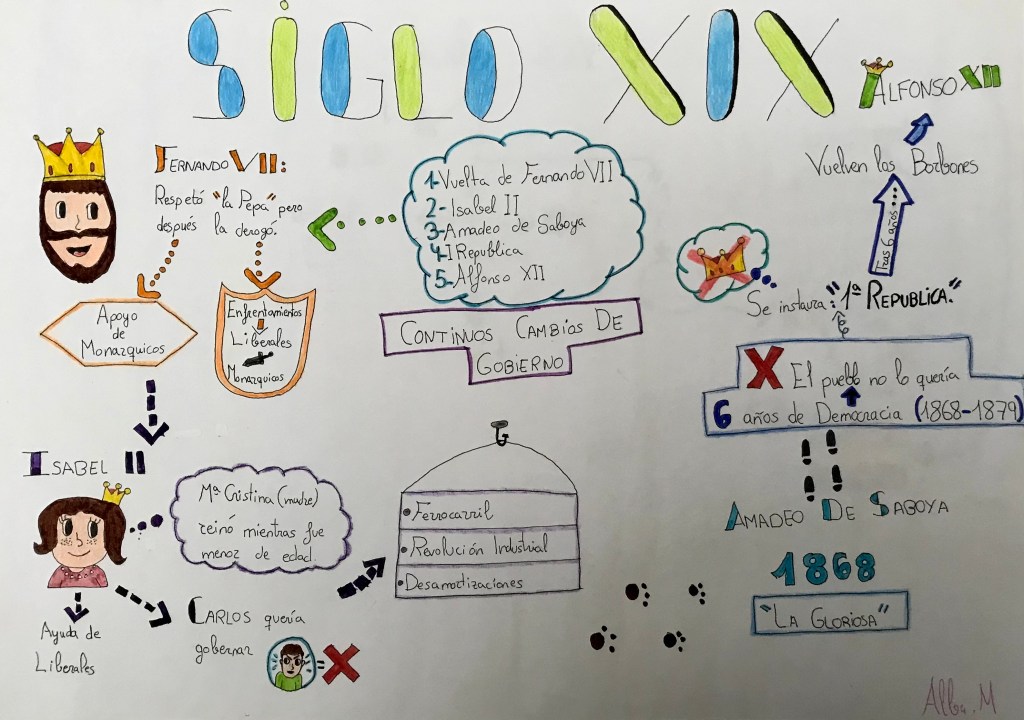 SIGLO XIX
ALFONSO XII
Vuelven los Borbones
Tras 6 años
Se instaura: "1ª REPUBLICA."
FERNANDO VII:
Respetó "la Pepa" pero
después la derogó.
Apoyo
de
Monarquicos
Enfrentamientos
Liberales
Monarquicos
1-Vuelta de Fernando VII
2-Isabel II
3-Amadeo de Saboya
4-I Republica
5-Alfonso XII
CONTINUOS CAMBIOS DE
GOBIERNO
X El pueblo no lo quería
6 años de Democracia (1868-1879)
AMADEO DE SABOYA
1868
"LA GLORIOSA"
ISABEL II
Mª Cristina (madre)
reinó mientras fue
menor de edad.
Ayuda de
Liberales
CARLOS quería
gobernar
= X
• Ferrocarril
• Revolución Industrial
• Desamortizaciones
Alba.M